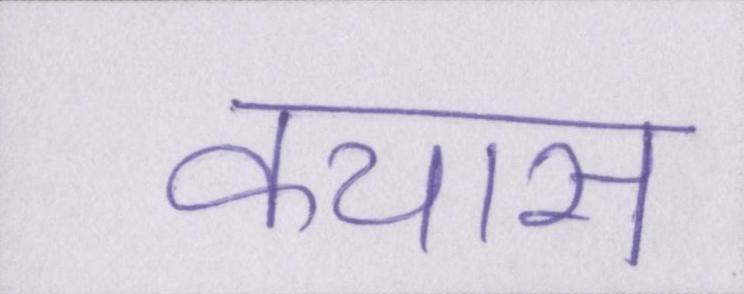 कयास